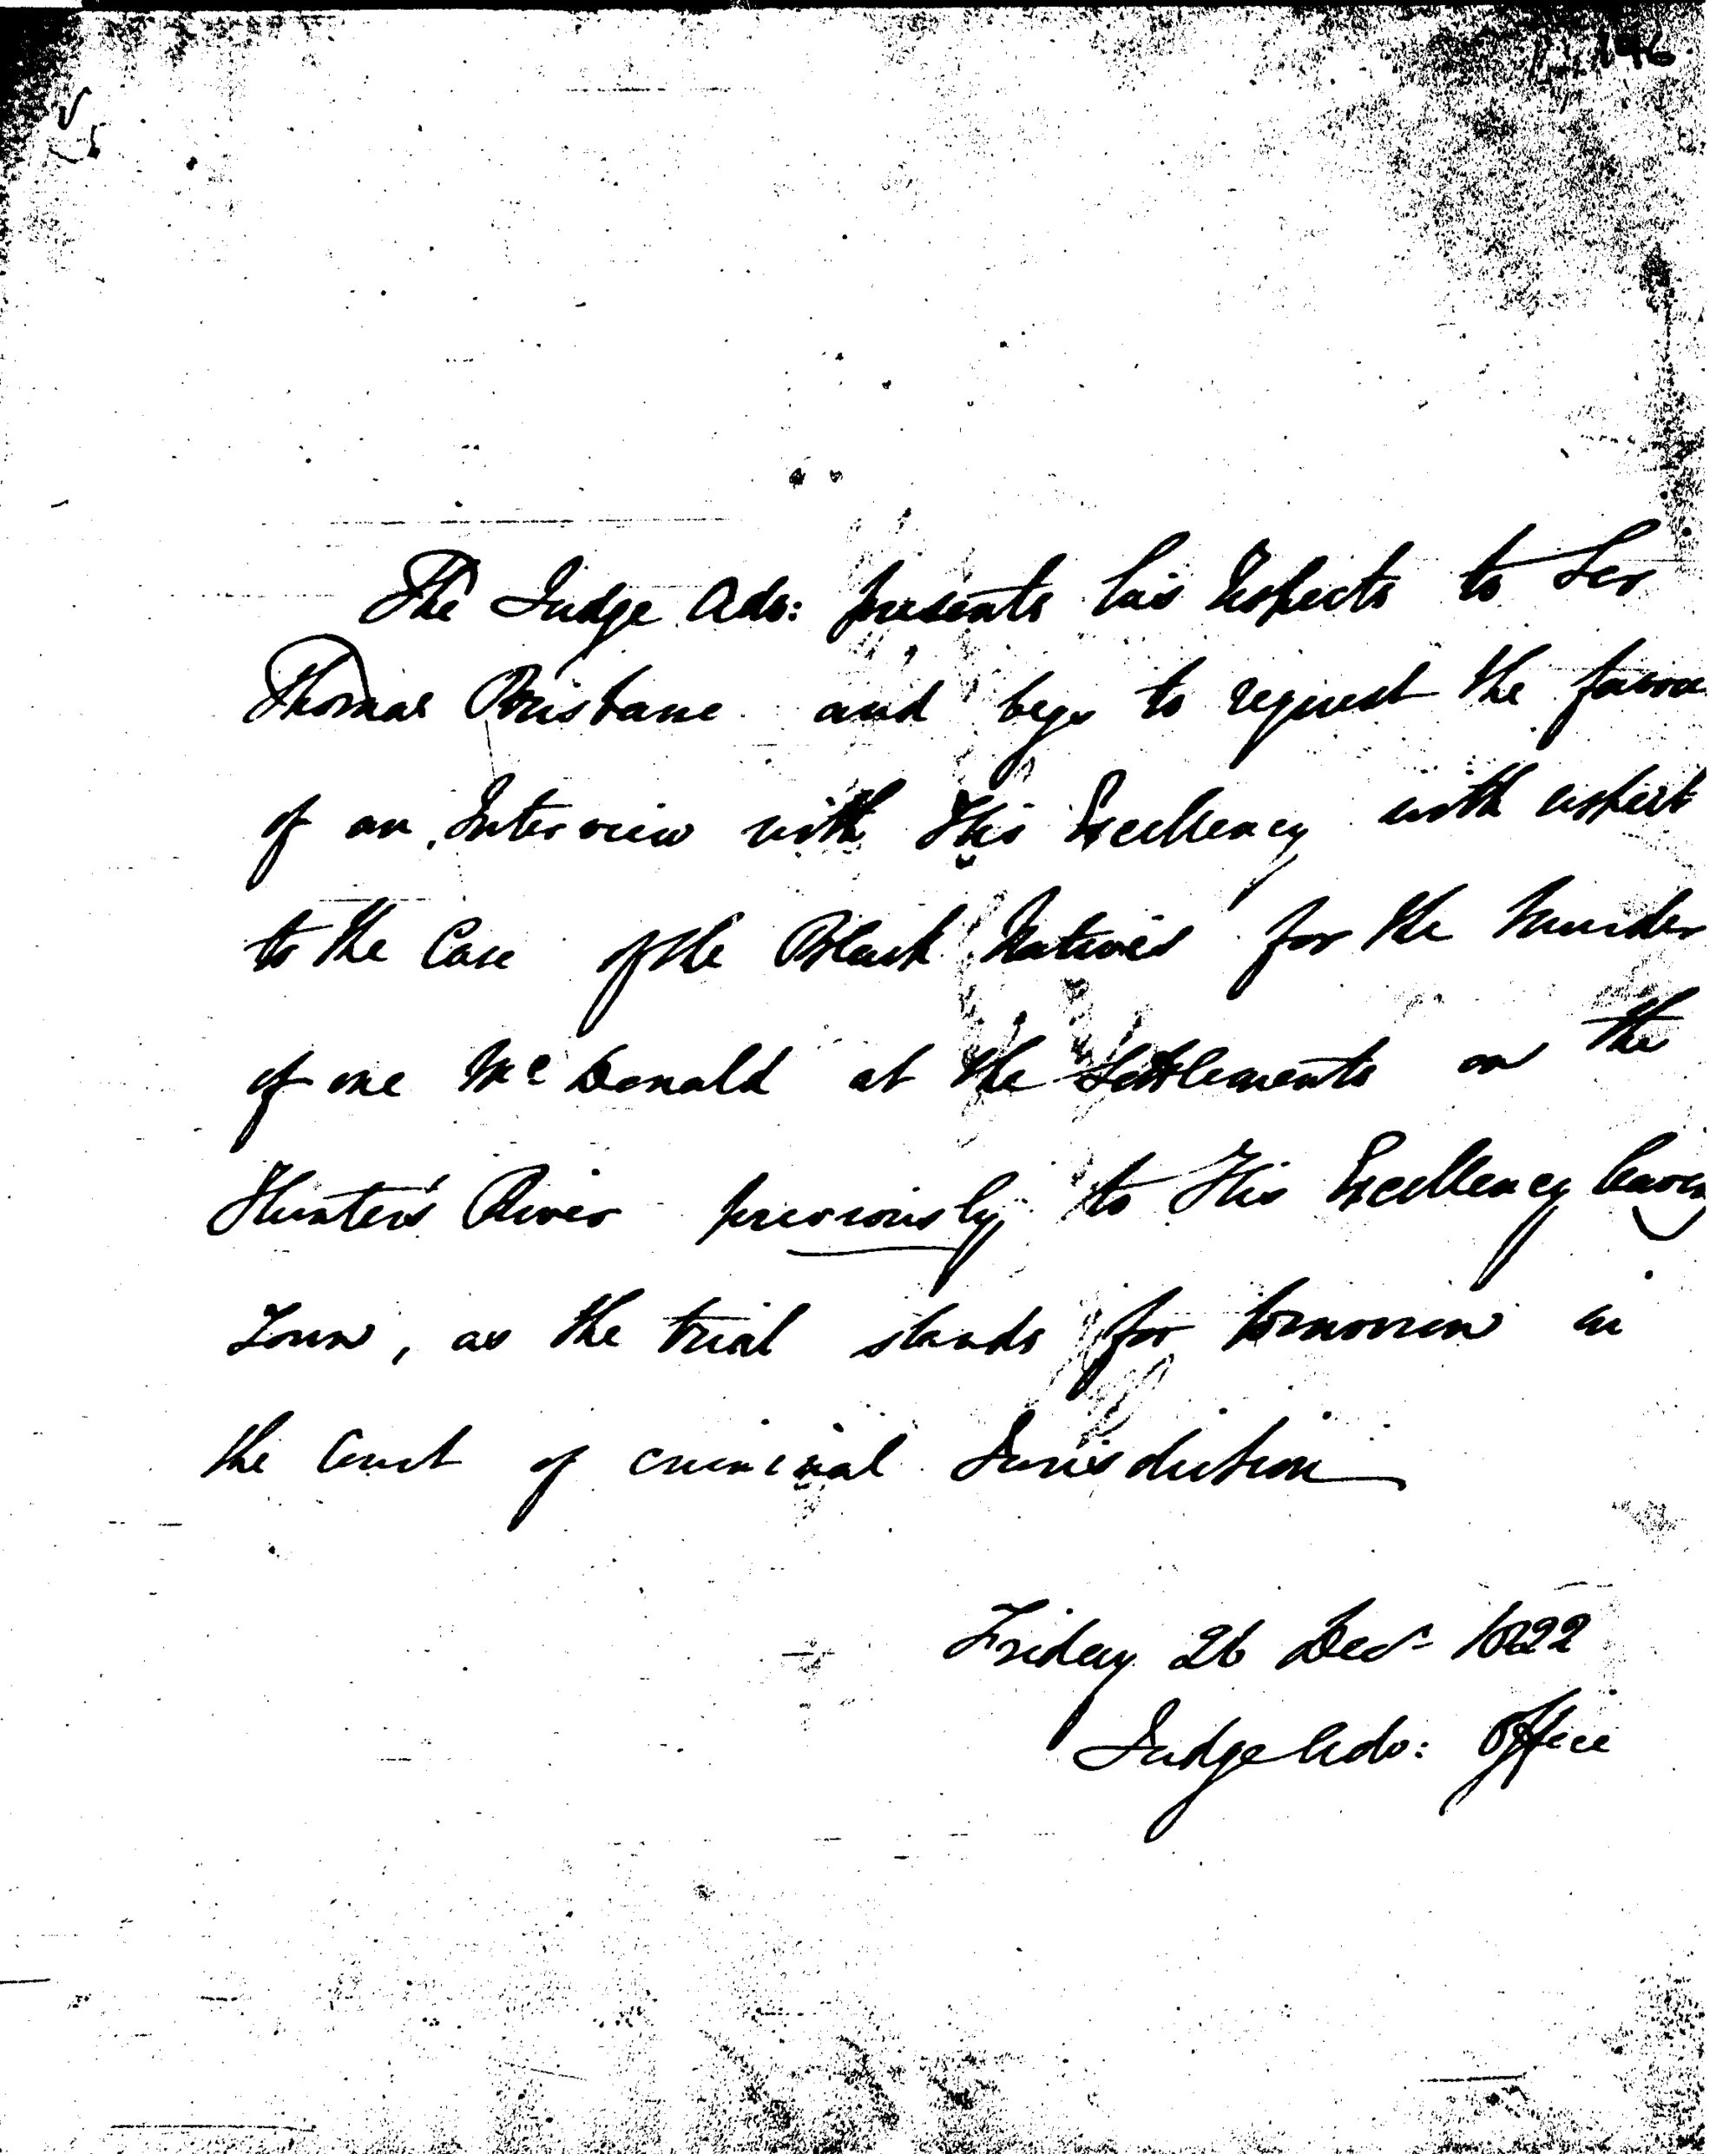 196
The Judge Ado: presents his Respects to Sir
Thomas Brisbane and begs to request the favou
of an Interview with His Excellency with respect
to the Case of the Black Natives for the Murder
of one Mc Donald at the Settlements on the
Hunter's River previously to His Excellency leaving
Town, as the trial stands for tomorrow in
the Court of criminal Jurisdiction
Friday 26 Decr 1822
Judge Ado: Office